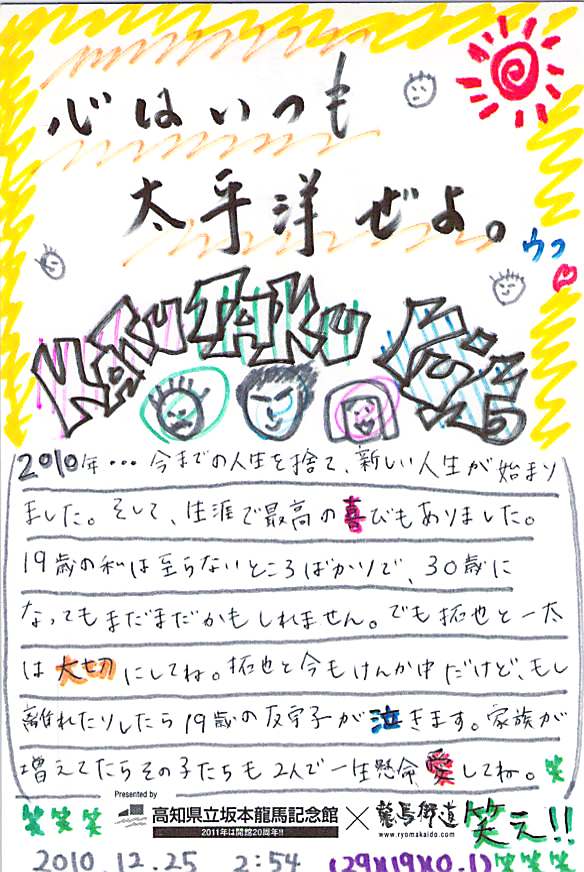 心はいつも
太平洋ぜよ。
ウフ
2010年・・・今までの人生を捨て、新しい人生が始まり
ました。そして、生涯で最高の喜びもありました。
19歳の私は至らないところばかりで、30歳に
なってもまだまだかもしれません。でも拓也と一太
は大切にしてね。拓也と今もけんか中だけど、もし
離れたりしたら19歳の友宇子が泣きます。家族が
増えてたらその子たちも2人で一生懸命愛してね。笑
Presented by
高知県立坂本龍馬記念館 × 龍馬街道
2011年は開館20周年!!
www.ryomakaido.com
笑笑笑
笑え!!
2010.12.25 2:54 (29×19×0.1)笑笑笑